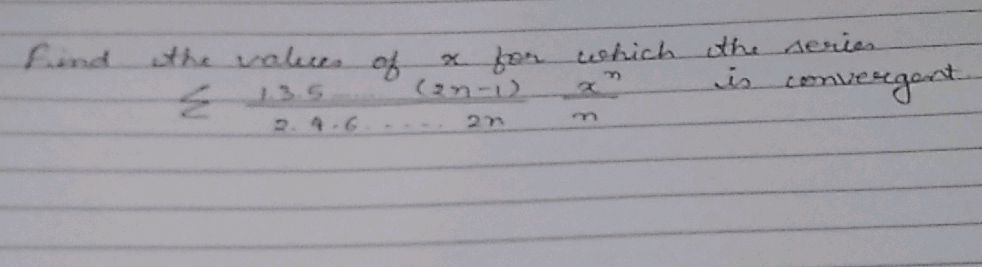 Find the values of x for which the series
Σ 1.3.5....(2n-1) / 2.4.6..... 2n x^n / n is convergent